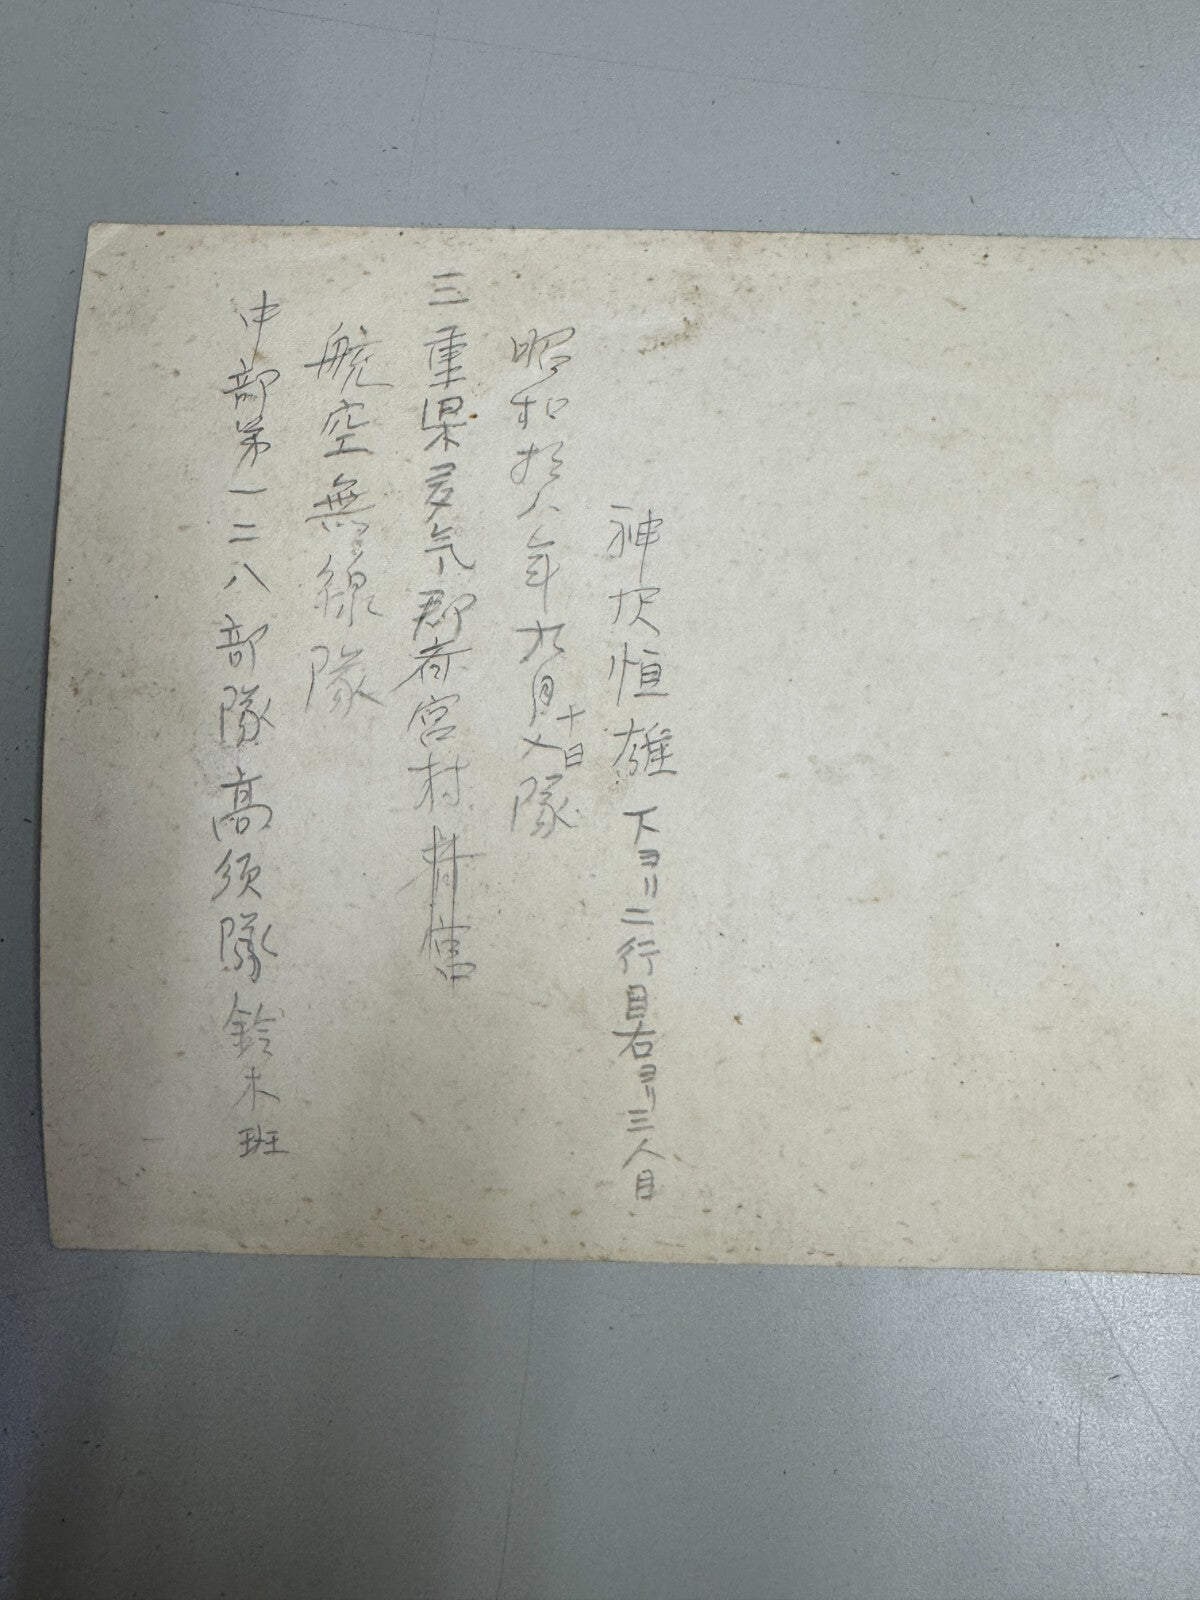 神次恒雄 下ヨリ二行目右ヨリ三人目
昭和拾八年九月十日入隊
三重県多気郡斎宮村
航空無線隊
中部第一二八部隊高須隊鈴木班